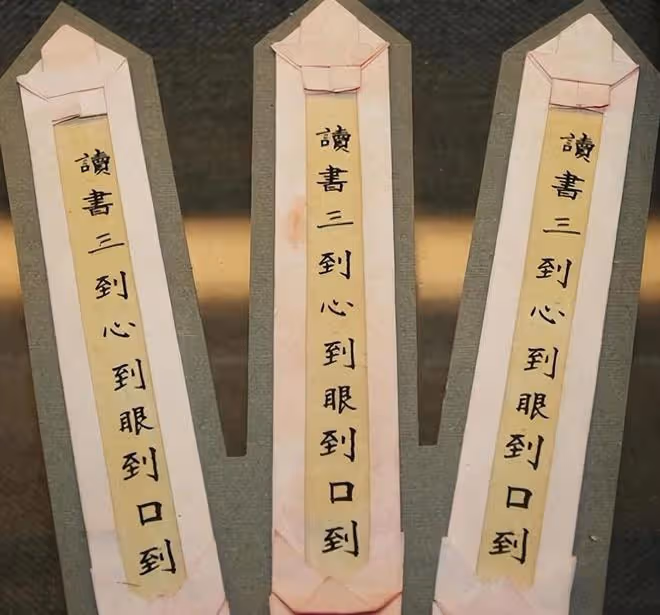 讀書三到心到眼到口到
讀書三到心到眼到口到
讀書三到心到眼到口到